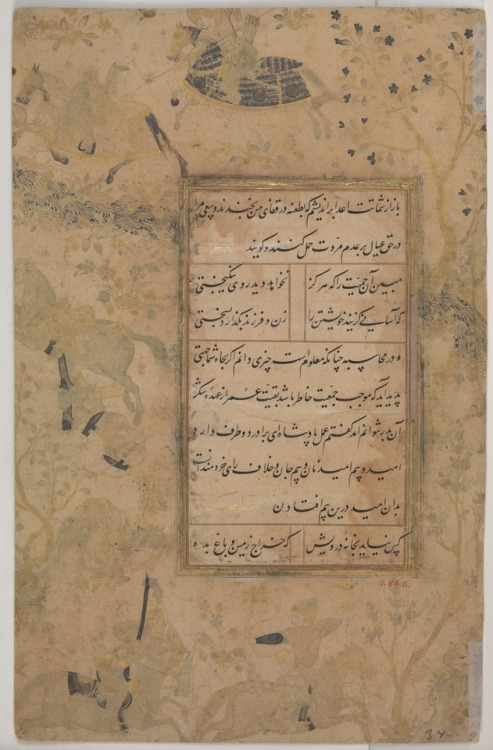 باز از شماتت اعدا بر اندیشم که بطعنه در قفای من بخندند و سعی مرا
در حق عیال بر عدم مروت حمل کنند و گویند
مبین آن بی حمیت را که هرگز نخواهد دید روی نیکبختی
که آسانی گزیند خویشتن را زن و فرزند بگذارد بسختی
و در محاسبه چنانکه معلومست چیزی دانم اگر بجاه شما جهتی
پدید آید که موجب جمعیت خاطر باشد بقیت عمر از عهده شکر
آن بدر توانم آمد گفتم عمل پادشاه ای برادر دو طرف دارد
امید و بیم امید نان و بیم جان و خلاف رای خردمندانست
بدان امید درین بیم افتادن
کس نیاید بخانه درویش که خراج زمین و باغ بده